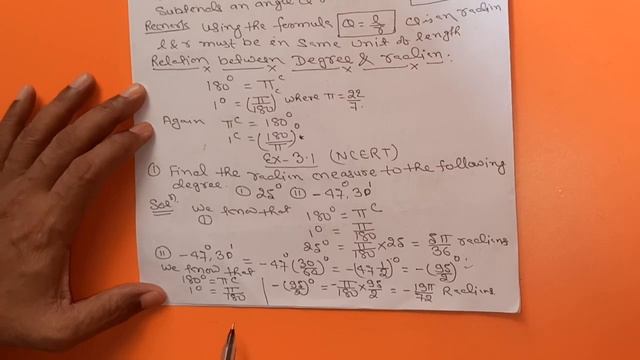 Subtends an angle
Remark using the formula θ = l/r θ is an radian
l & r must be in same unit of length
Relation between Degree & radian:
180° = π^c
1° = (π/180)^c where π = 22/7
Again π^c = 180°
1^c = (180/π)°
Ex-3.1 (NCERT)
① Find the radian measure to the following
degree. ① 25° ⑪ -47°,30'
Sol^n) We know that 180° = π^c
① 1° = π/180
25° = π/180 × 25 = 5π/36 radians
⑪ -47°,30' = -47°(30/60)° = -(47 1/2)° = -(95/2)°
We know that
180° = π^c
1° = π/180
-(95/2)° = -π/180 × 95/2 = -19π/72 Radians